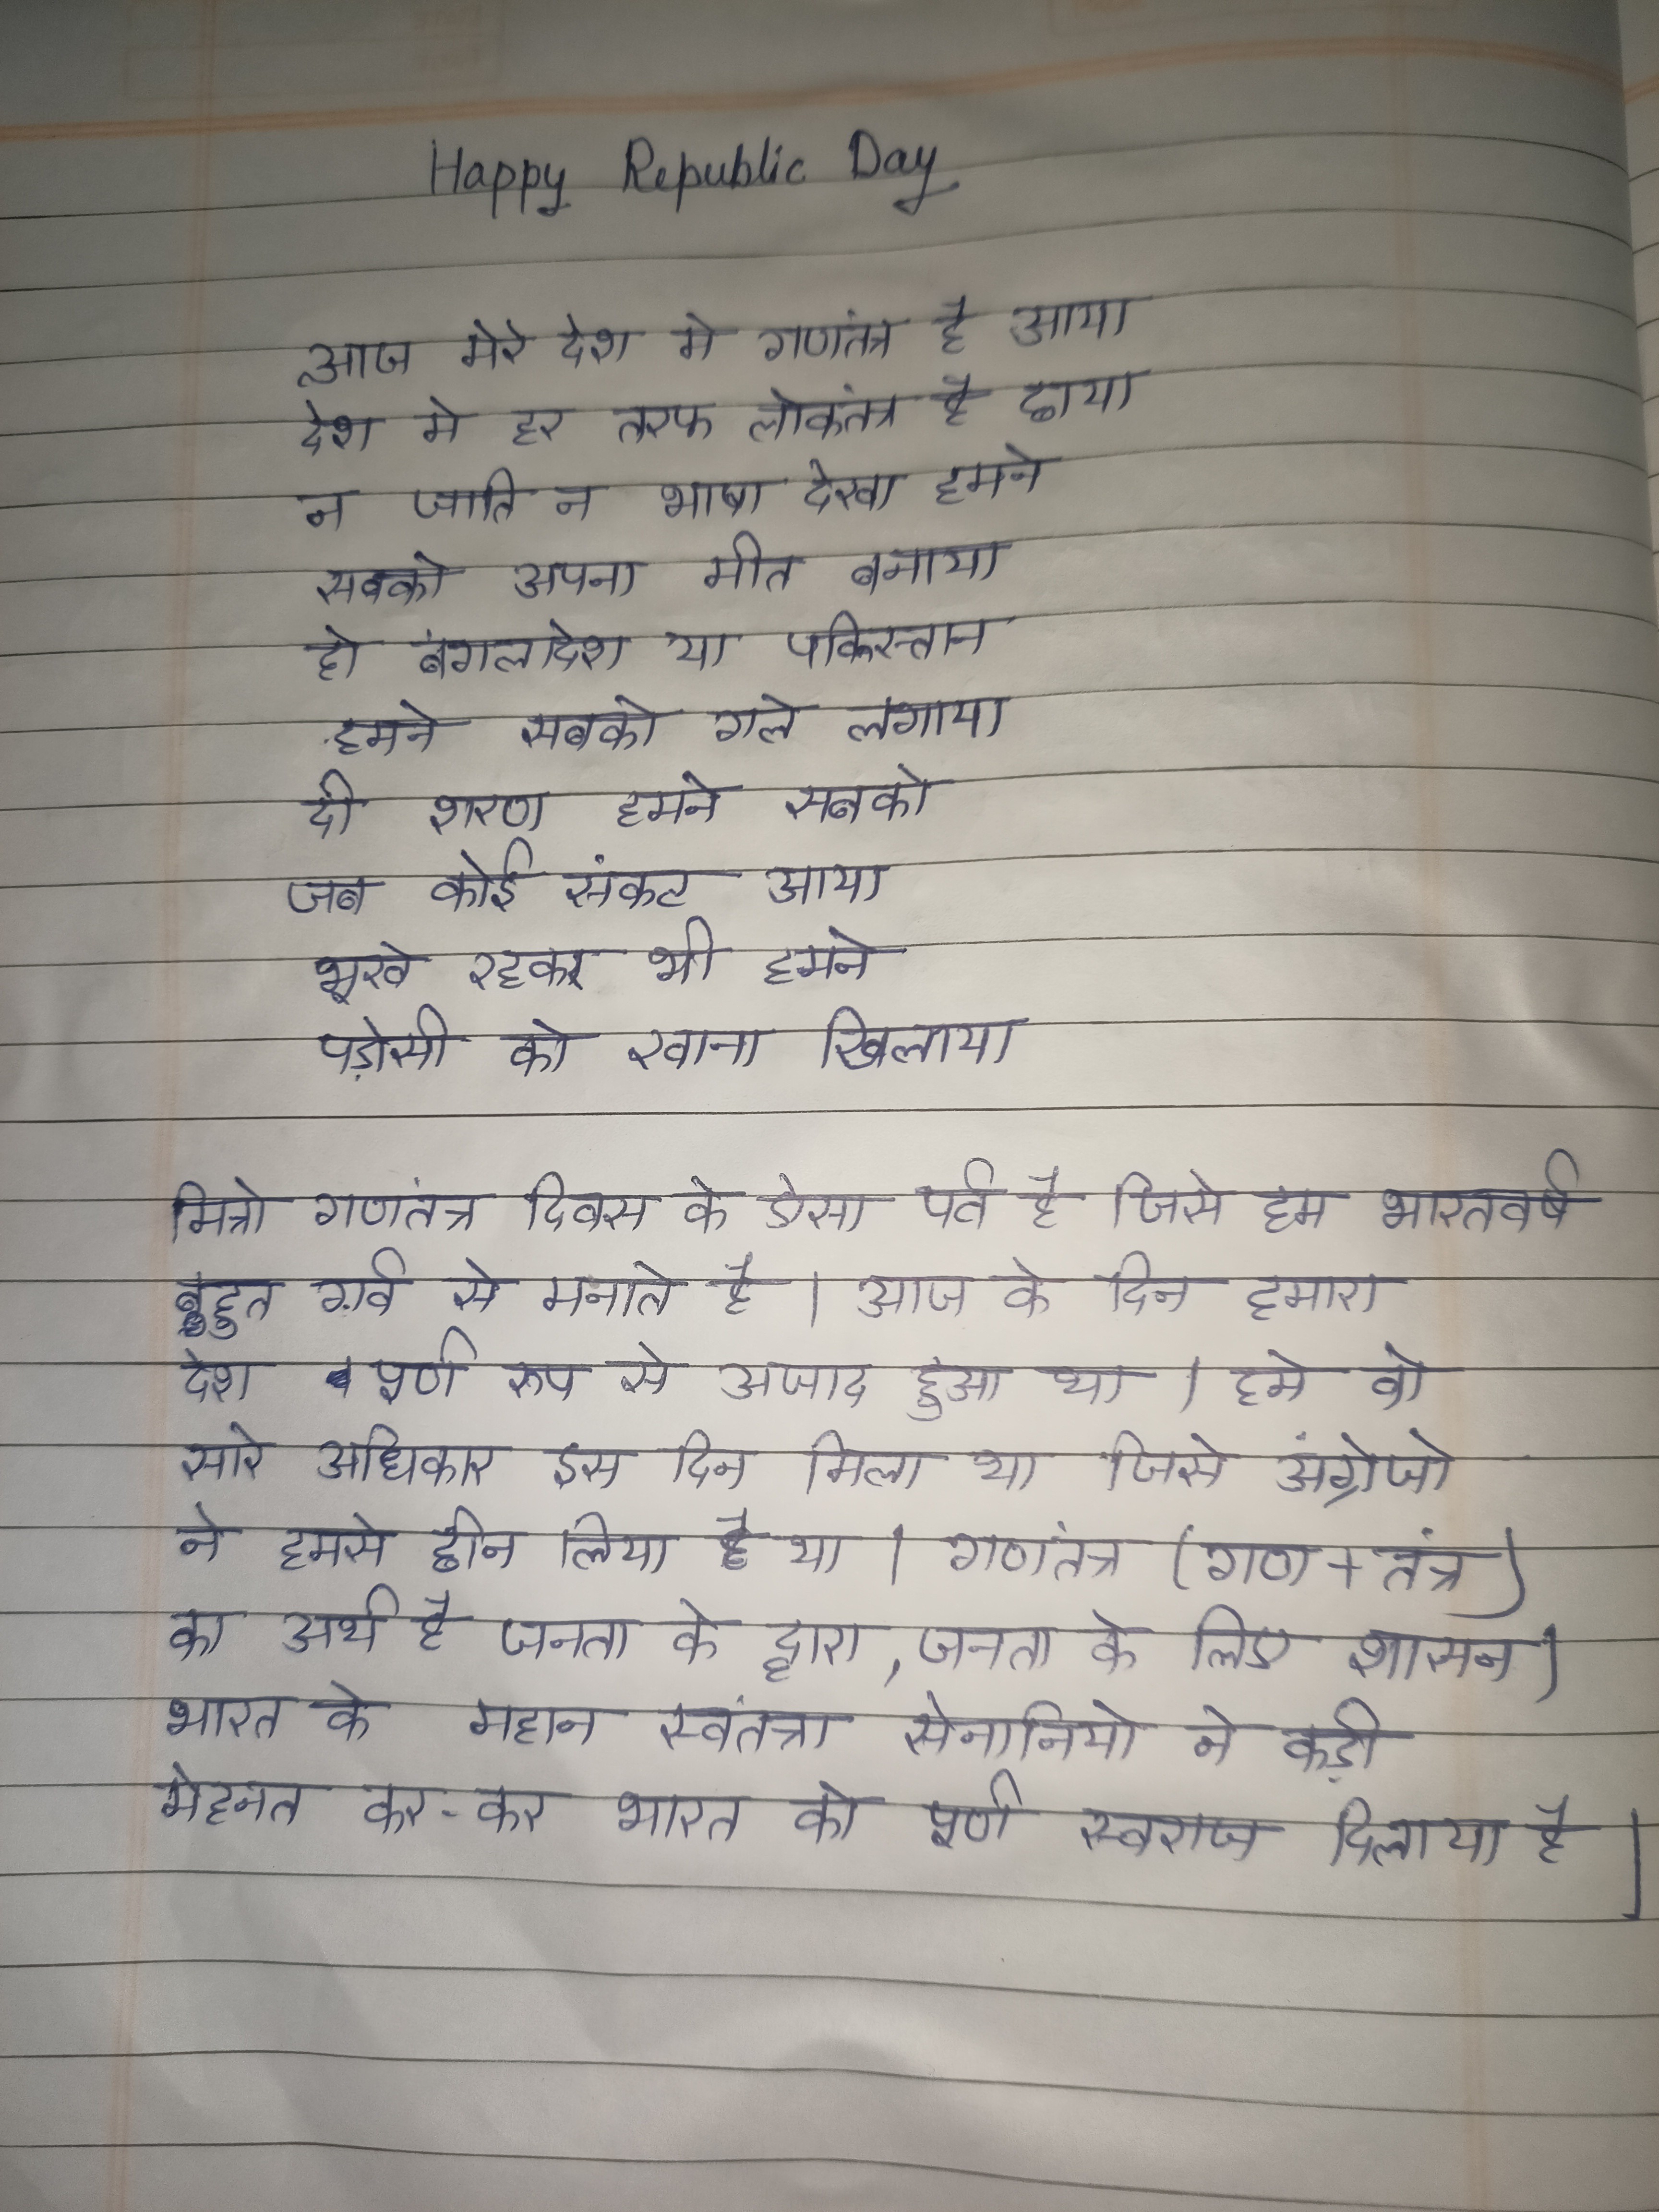 Happy Republic Day
आज मेरे देश मे गणतंत्र है आया
देश मे हर तरफ लोकतंत्र है छाया
न जाति न भाषा देखा हमने
सबको अपना मीत बनाया
हो बंगलादेश या पकिस्तान
हमने सबको गले लगाया
दी शरण हमने सबको
जब कोई संकट आया
भूखे रहकर भी हमने
पड़ोसी को खाना खिलाया
मित्रो गणतंत्र दिवस के ऐसा पर्व है जिसे हम भारतवर्ष
बहुत गर्व से मनाते है । आज के दिन हमारा
देश पूर्ण रूप से अजाद हुआ था । हमे वो
सारे अधिकार इस दिन मिला था जिसे अंग्रेजो
ने हमसे छीन लिया है था । गणतंत्र (गण + तंत्र)
का अर्थ है जनता के द्वारा, जनता के लिए शासन ।
भारत के महान स्वतंत्रा सेनानियो ने कड़ी
मेहनत कर-कर भारत को पूर्ण स्वराज दिलाया है ।